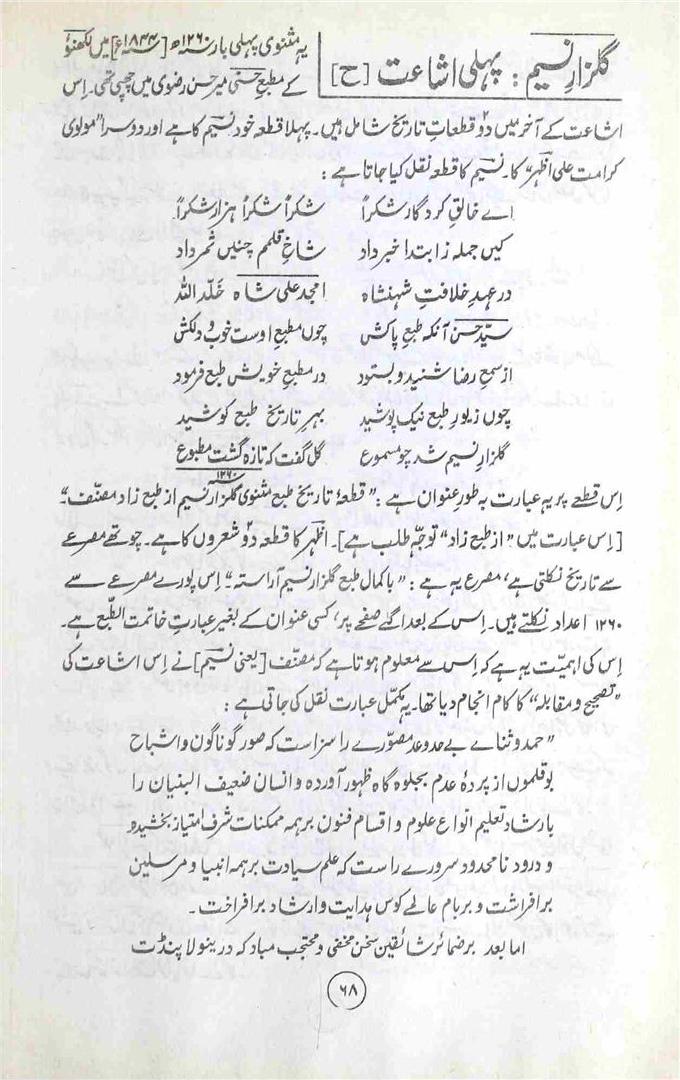 گلزارِ نسیم: پہلی اشاعت [ح]
یہ مثنوی پہلی بار سنہ ۱۲۶۰ھ [سنہ ۱۸۴۴ء] میں لکھنؤ
کے مطبعِ حسنی میر حسن رضوی میں چھپی تھی۔ اِس
اشاعت کے آخر میں دو۲ قطعاتِ تاریخ شامل ہیں۔ پہلا قطعہ خود نسیم کا ہے اور دوسرا "مولوی
کرامت علی اظہر" کا۔ نسیم کا قطعہ نقل کیا جاتا ہے:
اے خالقِ کردگار شکراً شکراً شکراً ہزار شکراً
کیں جملہ ز ابتدا خبر داد شاخِ قلمم چنیں ثمر داد
در عہدِ خلافتِ شہنشاہ امجد علی شاہ خلّد اللہ
سیّد حسن آنکہ طبعِ پاکش چوں مطبعِ اوست خوب و دلکش
از سمعِ رضا شنید و بستود در مطبعِ خویش طبع فرمود
چوں زیورِ طبع نیک پوشید بہرِ تاریخِ طبع کوشید
گلزارِ نسیم شد چو مسموع گل گفت کہ تازہ گشت مطبوع
۱۲۶۰
اِس قطعے پر یہ عبارت بہ طورِ عنوان ہے: "قطعۂ تاریخِ طبعِ مثنوی گلزارِ نسیم از طبع زاد مصنّف"۔
[اِس عبارت میں "از طبع زاد" توجّہ طلب ہے]۔ اظہر کا قطعہ دو۲ شعروں کا ہے۔ چوتھے مصرعے
سے تاریخ نکلتی ہے، مصرع یہ ہے: "باکمالِ طبع گلزارِ نسیم آراستہ"۔ اِس پورے مصرعے سے
۱۲۶۰ اعداد نکلتے ہیں۔ اِس کے بعد اگلے صفحے پر، کسی عنوان کے بغیر عبارتِ خاتمت الطّبع ہے۔
اِس کی اہمیّت یہ ہے کہ اِس سے معلوم ہوتا ہے کہ مصنّف [یعنی نسیم] نے اِس اشاعت کی
"تصحیح و مقابلہ" کا کام انجام دیا تھا۔ یہ مکمّل عبارت نقل کی جاتی ہے:
"حمد و ثناے بے حد و عد مصوّرے را سزاست کہ صورِ گوناگون و اشباح
بوقلموں از پردۂ عدم بجلوہ گاہ ظہور آوردہ و انسان ضعیف البنیان را
بارشاد تعلیم انواع علوم و اقسام فنون برہمہ ممکنات شرفِ امتیاز بخشید و
و درود نامحدود سرورے راست کہ علمِ سیادت برہمہ انبیا و مرسلین
برافراشت و بربام عالمے کوسِ ہدایت و ارشاد برافراخت۔
اما بعد بر ضمائرِ شائقین سخن مخفی و محتجب مباد کہ درینولا پنڈت
۶۸